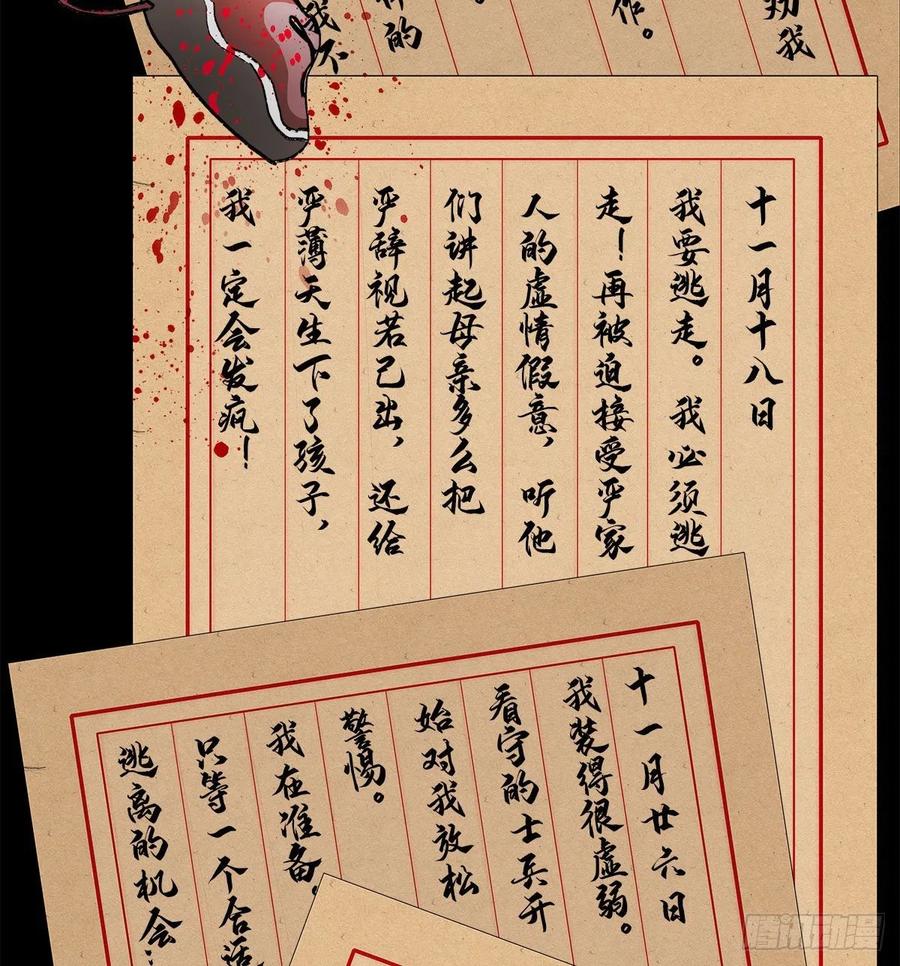 劝我
作。
的
我不
十一月十八日
我要逃走。我必须逃
走！再被迫接受严家
人的虚情假意，听他
们讲起母亲多么把
严辞视若己出，还给
严薄天生下了孩子，
我一定会发疯！
十一月廿六日
我装得很虚弱。
看守的士兵开
始对我放松
警惕。
我在准备，
只等一个合适
逃离的机会…
腾讯动漫